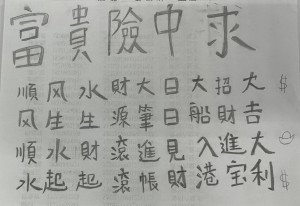 富貴險中求
順风順水
风生水起
水生財起
財源滾滾
大筆進帳
日日見財
大船入港
招財進宝
大吉大利
$
$